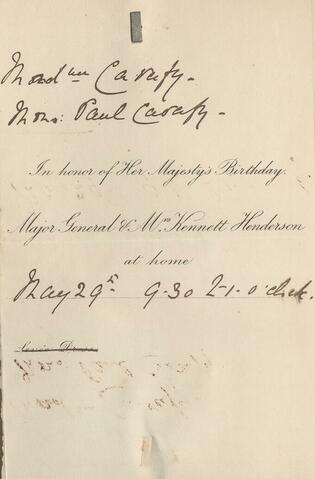 Mad^me Cavafy.
Mons: Paul Cavafy.
In honor of Her Majesty's Birthday.
Major General & M^rs Kennett Henderson
at home
May 29^th 9.30 to 1. o'clock.
Dress